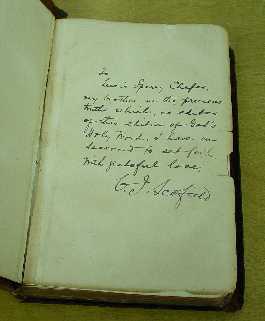 To
Lewis Sperry Chafer,
my brother in the precious
truth which, as editor
of this edition of God's
Holy Word, I have en
deavored to set forth
With grateful love,
C. I. Scofield